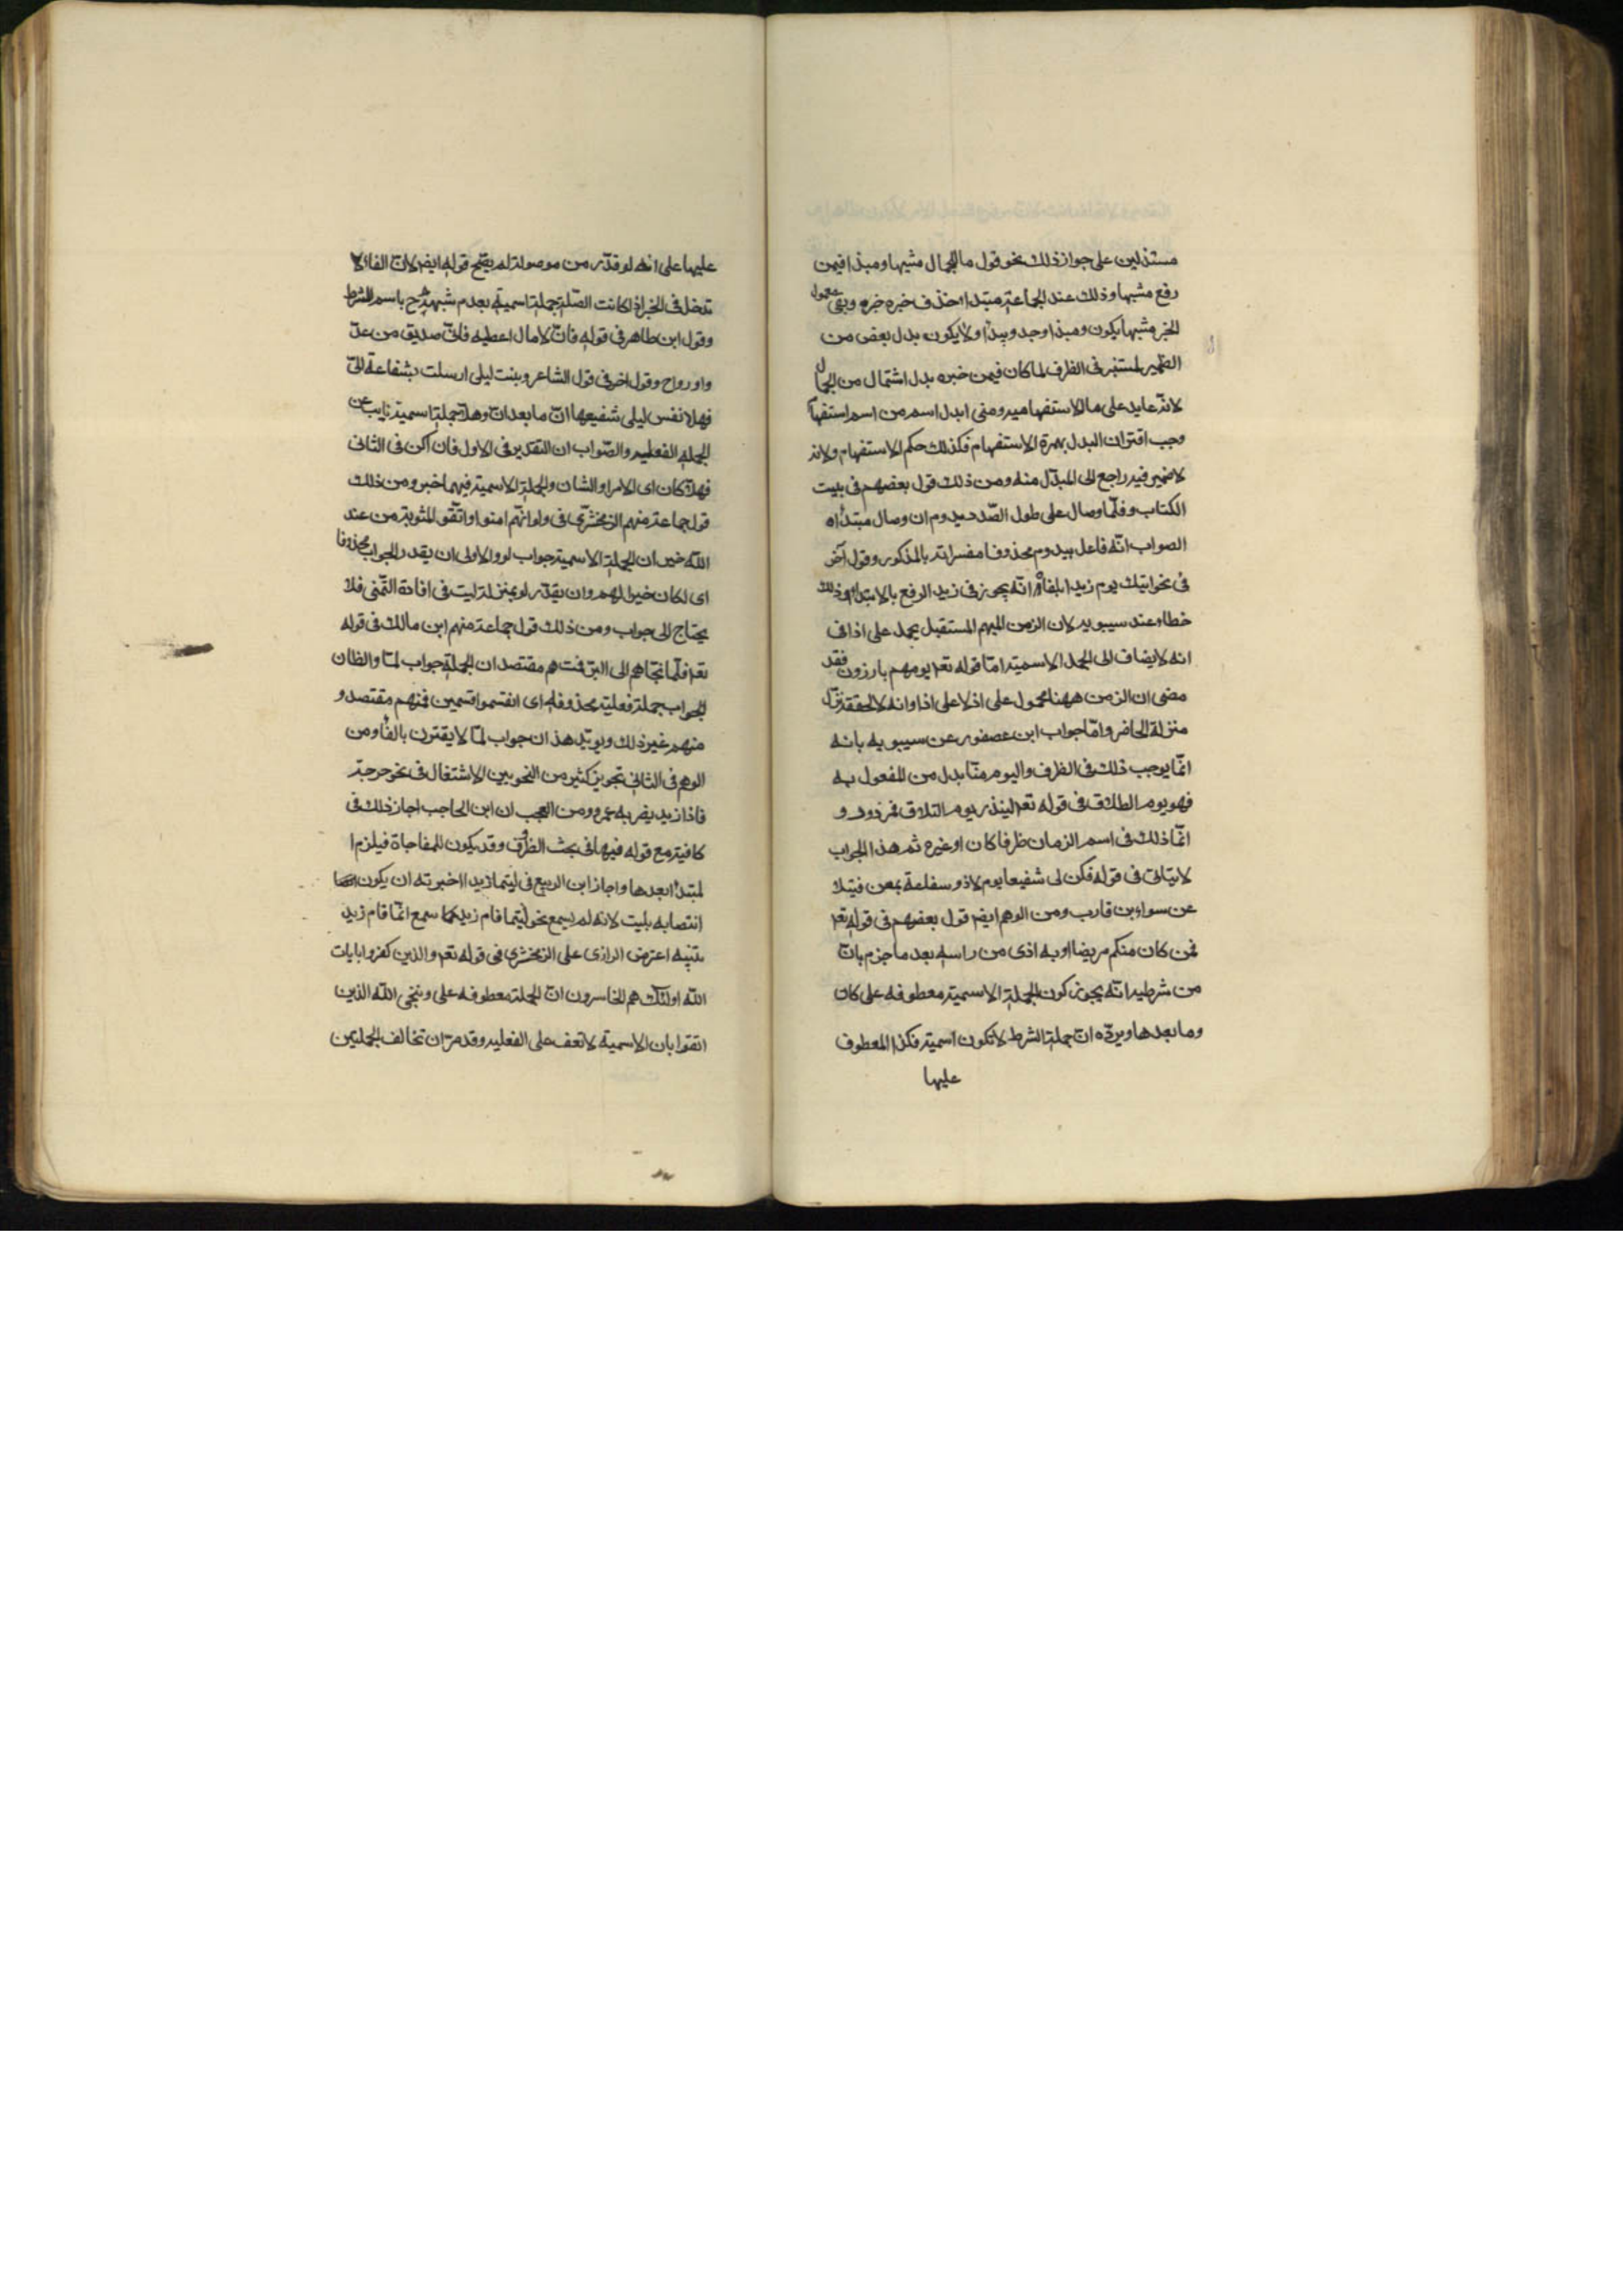 مستدلين على جواز ذلك بنحو قول ما للجمال مشيها ومبدا فيمن
رفع مشيها وذلك عند الجماعة مبتدا حذف خبره خبره وبقى معمول
الخبر مشيها يكون ومبدا وجد ويبدا ولا يكون بدل بعض من
الضمير لمستتر فى الظرف لما كان فيمن خبره بدل اشتمال من الجمال
لانه عايد على ما الاستفهاميه ومتى ابدل اسم من اسم استفهام
وجب اقتران البدل بهمزة الاستفهام فكذلك حكم الاستفهام ولانه
لا ضمير فيه راجع الى المبدل منه ومن ذلك قول بعضهم فى بيت
الكتاب وقلما وصال على طول الصدد يدوم ان وصال مبتدا ه
الصواب انه فاعل بيدوم محذوفا مفسرا بالمذكور وقول آخر
فى نحو اتيك يوم زيدا تلقاه انه يجوز فى زيد الرفع بالابتدا وذلك
خطا عند سيبويه لان الزمن المبهم المستقبل يحمل على اذا فى
انه لا يضاف الى الجمل الاسمية اما قوله تع يومهم بارزون فقد
مضى ان الزمن ههنا محمول على اذ لا على اذا وانه لا لتحققه نزل
منزلة الحاضر واما جواب ابن عصفور عن سيبويه بانه
انما يوجب ذلك فى الظرف واليوم هنا بدل من المفعول به
فهو يوم الطلاق فى قوله تع لينذر يوم التلاق فمردود و
انما ذلك فى اسم الزمان ظرفا كان او غيره ثم هذا الجواب
لا يتاتى فى قوله فكن لى شفيعا يوم لا ذو سفاعة بمعن فتيلا
عن سواد بن قارب ومن الوهم ايضم قول بعضهم فى قوله تع
فمن كان منكم مريضا او به اذى من راسه بعد ما جزم بان
من شرطيه انه يجوز كون الجملة الاسمية معطوفه على كان
وما بعدها ويرده ان جملة الشرط لا تكون اسمية فكذا المعطوف
عليها
عليها على انه لو قدر من موصولة لم يصح قوله ايضم لان الفا لا
تدخل فى الخبر اذا كانت الصلة جملة اسمية بعدم شبهه ح باسم الشرط
وقول ابن طاهر فى قوله فان لا مال اعطيه فانى صديق من غد
واو رواح وقول اخر فى قول الشاعر وبنت ليلى ارسلت بشفاعة الى
فهلا نفس ليلى شفيعها ان ما بعد ان وهلا جملة اسمية نايب عن
الجملة الفعليه والصواب ان التقدير فى الاول فان اكن فى الثانى
فهلا كان اى الامر او الشان والجملة الاسمية فيهما خبر ومن ذلك
قول جماعة منهم الزمخشرى فى ولو انهم امنوا واتقو لمثوبة من عند
الله خير ان الجملة الاسمية جواب لو والاولى ان يقدر الجواب محذوفا
اى لكان خيرا لهم وان يقدر لو بمنزلة ليت فى افادة التمنى فلا
يحتاج الى جواب ومن ذلك قول جماعة منهم ابن مالك فى قوله
تع فلما نجاهم الى البر فمنهم مقتصد ان الجملة جواب لما والظان
الجواب جملة فعلية محذوفه اى انقسموا قسمين فمنهم مقتصد و
منهم غير ذلك ويويد هذ ان جواب لما لا يقترن بالفا ومن
الوهم فى الثانى تجويز كثير من النحويين الاشتغال فى نحو خرجت
فاذا زيد يضربه عمرو ومن العجب ان ابن الحاجب اجاز ذلك فى
كافيته مع قوله فيها فى بحث الظروف وقد يكون للمفاجاة فيلزم ا
لمبتدا بعدها واجاز ابن الربيع فى ليتما زيدا اخبرته ان يكون
انتصابه بليت لانه لم يسمع نحو ليتما قام زيد كما سمع انما قام زيد
تنبيه اعترض الرازى على الزمخشرى فى قوله تع والذين كفروا بايات
الله اولئك هم الخاسرون ان الجملة معطوفه على وينجى الله الذين
اتقوا بان الاسمية لا تعف على الفعليه وقد مر ان تخالف الجملتين